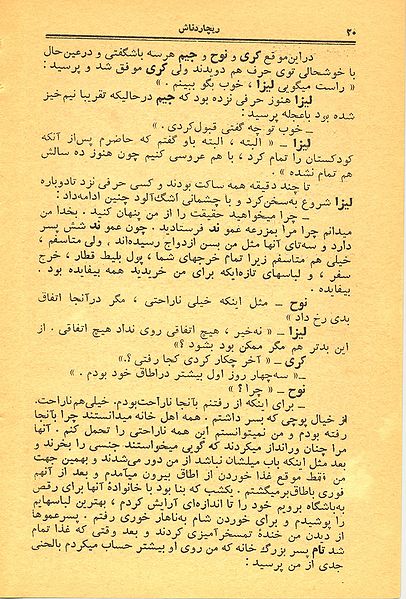 ۲۰ ریچاردناش
دراین‌موقع کری و نوح و جیم هرسه باشگفتی و درعین‌حال
با خوشحالی توی حرف هم دویدند ولی کری موفق شد و پرسید :
« راست میگویی لیزا ، خوب بگو ببینم . »
لیزا هنوز حرفی نزده بود که جیم درحالیکه تقریبا نیم‌خیز
شده بود باعجله پرسید :
ــ خوب تو چه گفتی قبول‌کردی . »
لیزا ــ « البته ، البته باو گفتم که حاضرم پس‌از آنکه
کودکستان را تمام کرد ، با هم عروسی کنیم چون هنوز ده سالش
هم تمام نشده »
تا چند دقیقه همه ساکت بودند و کسی حرفی نزد تادوباره
لیزا شروع به‌سخن‌کرد و با چشمانی اشگ‌آلود چنین ادامه‌داد :
ــ چرا میخواهید حقیقت را از من پنهان کنید . بخدا من
میدانم چرا مرا بمزرعه عمو ند فرستادید . چون عمو ند شش پسر
دارد و سه‌تای آنها مثل من بسن ازدواج رسیده‌اند ، ولی متاسفم ،
خیلی هم متاسفم زیرا تمام خرجهای شما ، پول بلیط قطار ، خرج
سفر ، و لباسهای تازه‌ایکه برای من خریدید همه بیفایده بود .
بیفایده .
نوح ــ مثل اینکه خیلی ناراحتی ، مگر درآنجا اتفاق
بدی رخ داد »
لیزا ــ « نه‌خیر ، هیچ اتفاقی روی نداد هیچ اتفاقی . از
این بدتر هم مگر ممکن بود بشود ؟»
کری ــ « آخر چکار کردی کجا رفتی ؟».
ــ« سه‌چهار روز اول بیشتر دراطاق خود بودم . »
نوح ــ « چرا ؟»
ــ برای اینکه از رفتنم بآنجا ناراحت‌بودم. خیلی‌هم‌ناراحت.
از خیال پوچی که بسر داشتم . همه اهل خانه میدانستند چرا بآنجا
رفته بودم و من نمیتوانستم این همه ناراحتی را تحمل کنم . آنها
مرا چنان ورانداز میکردند که گویی میخواستند جنسی را بخرند و
بعد مثل اینکه باب میلشان نباشد از من دور می‌شدند و بهمین جهت
من فقط موقع غذا خوردن از اطاق بیرون میآمدم و بعد از آنهم
فوری باطاق‌برمیگشتم . یکشب که بنا بود با خانوادهٔ آنها برای رقص
به‌باشگاه برویم خود را تا اندازه‌ای آرایش کردم ، بهترین لباسهایم
را پوشیدم و برای خوردن شام به‌ناهار خوری رفتم . پسرعموها
از دیدن من خندهٔ تمسخرآمیزی کردند و بعد وقتی که غذا تمام
شد تام پسر بزرگ خانه که من روی او بیشتر حساب میکردم بالحنی
جدی از من پرسید :